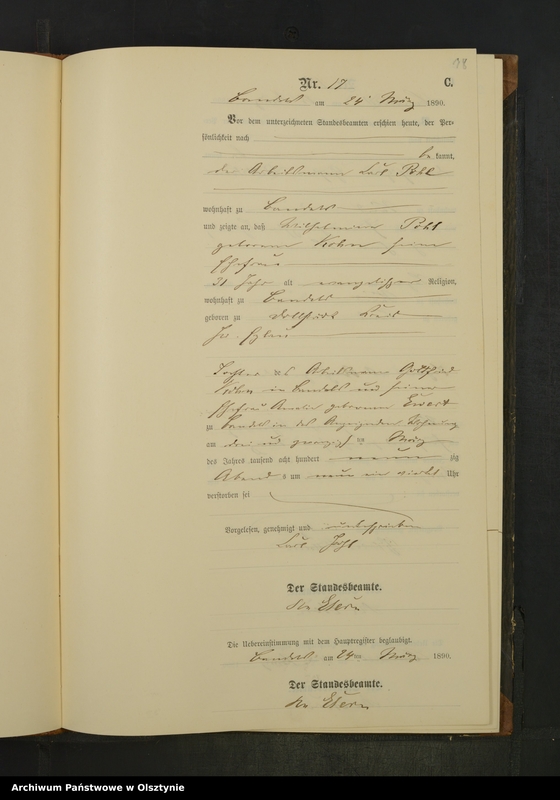 18
Nr. 17 C.
am 24 März 1890.
Vor dem unterzeichneten Standesbeamten erschien heute, der Per-
sönlichkeit nach
be kannt,
der Arbeitsmann Carl Pohl
wohnhaft zu
und zeigte an, daß Wilhelmine Pohl
geborene Kohn seine
Ehefrau
31 Jahr alt evangelischer Religion,
wohnhaft zu
geboren zu Dollstädt Kreis
Pr. Eylau
Tochter des Arbeitsmanns Gottfried
Kohn in und seiner
Ehefrau Amalie geborenen Ewert
zu in des Anzeigenden Wohnung
am drei und zwanzigsten März
des Jahres tausend acht hundert neun zig
Abend s um neun ein viertel Uhr
verstorben sei
Vorgelesen, genehmigt und unterschrieben
Carl Pohl
Der Standesbeamte.
Die Uebereinstimmung mit dem Hauptregister beglaubigt.
am 24ten März 1890.
Der Standesbeamte.
Archiwum Państwowe w Olsztynie